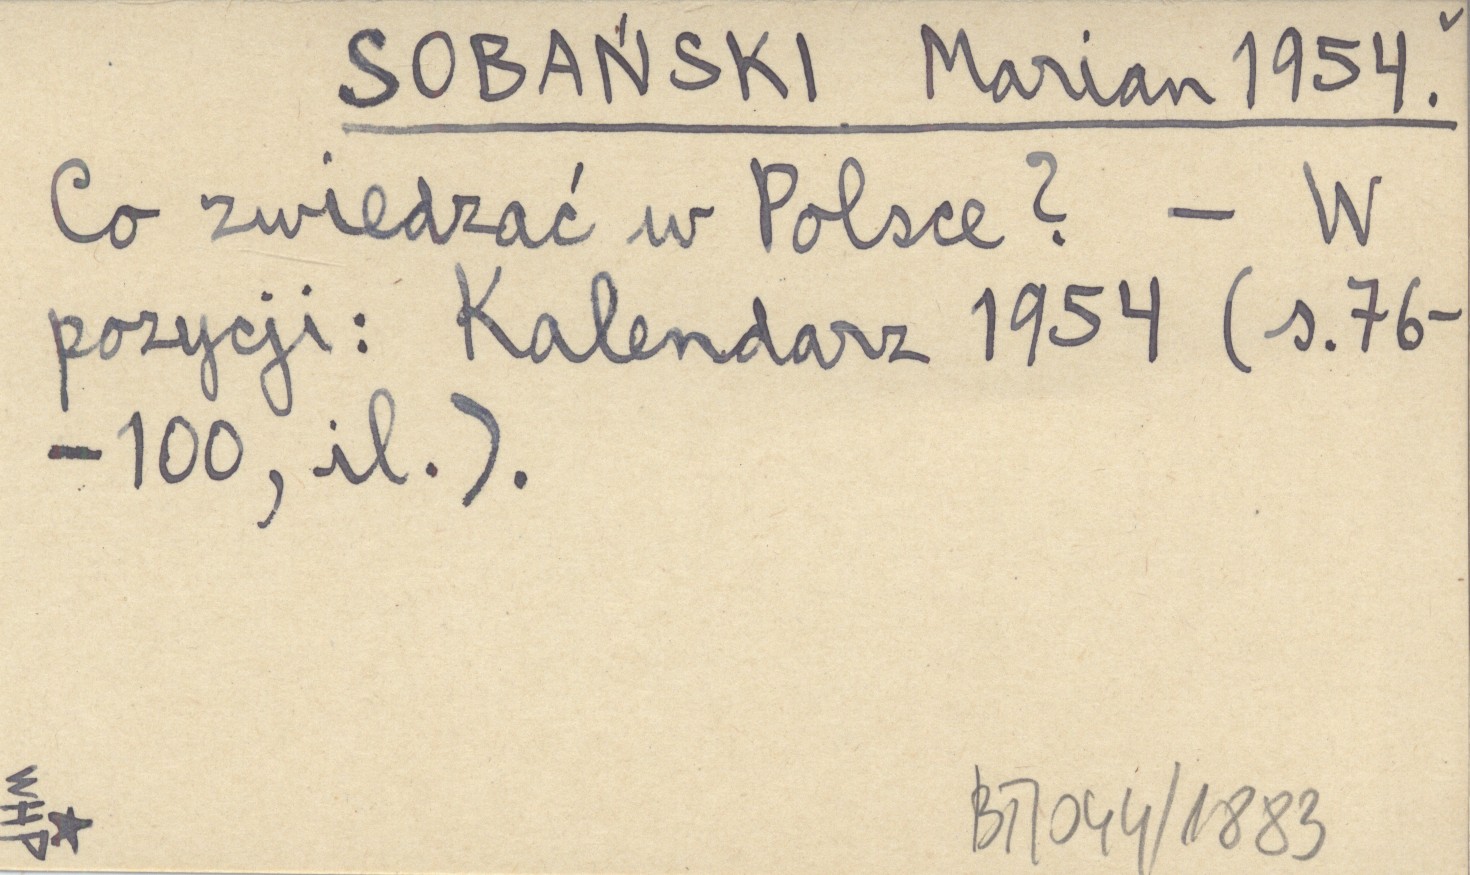 SOBAŃSKI Marian 1954.
Co zwiedzać w Polsce? — W
pozycji: Kalendarz 1954 (s.76-
-100, il.).
WHP
BT/044/1883